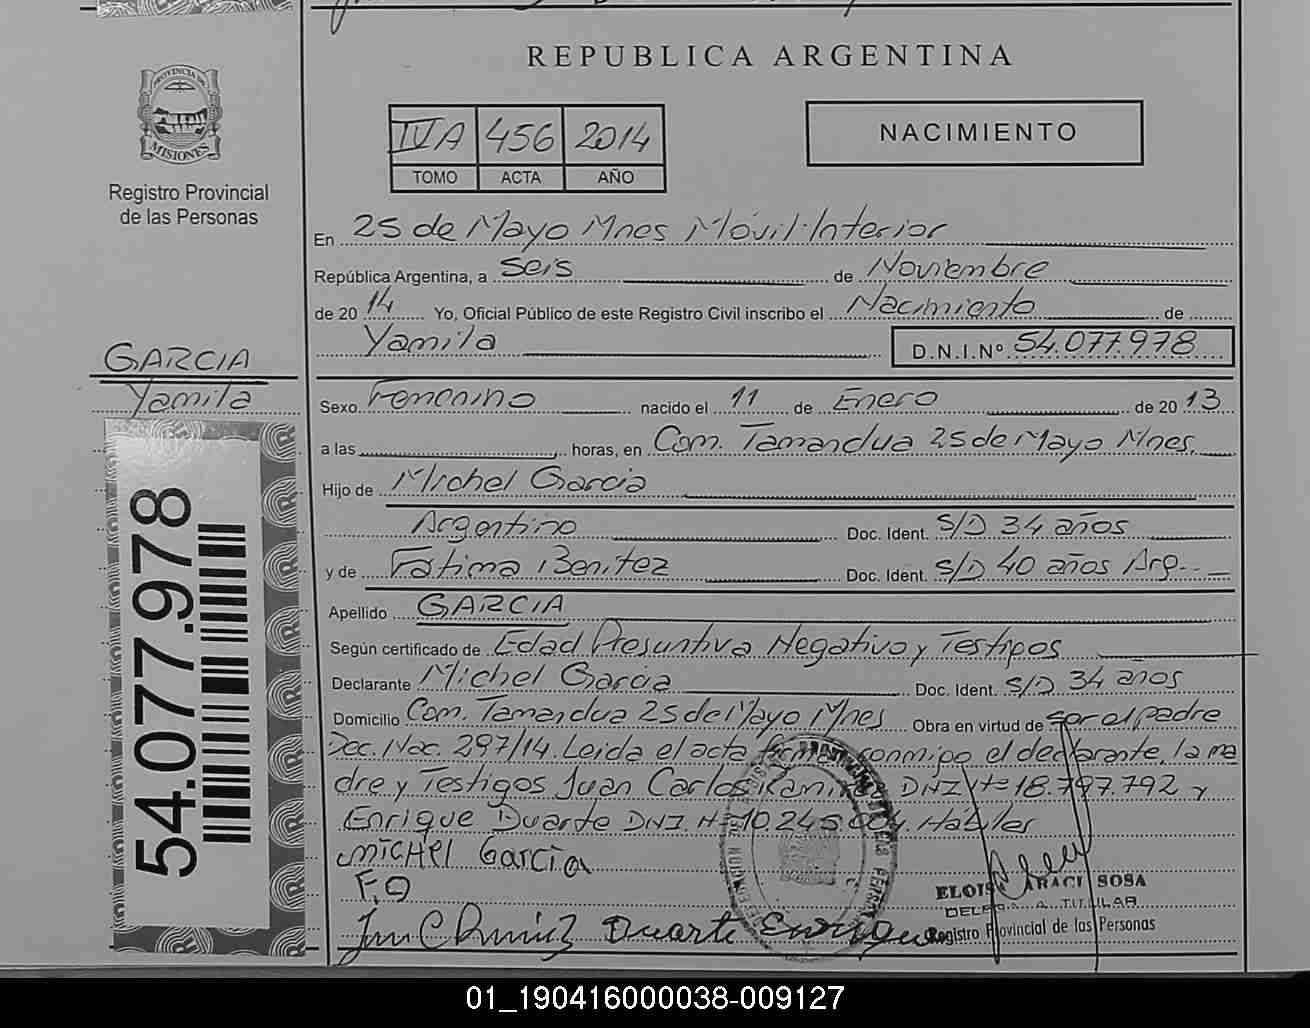 REPUBLICA ARGENTINA
PROVINCIA DE
MISIONES
Registro Provincial
de las Personas
IVA 456 2014
TOMO ACTA AÑO
NACIMIENTO
En 25 de Mayo Mnes Móvil-Interior
República Argentina, a seis de Noviembre
de 2014 Yo, Oficial Público de este Registro Civil inscribo el Nacimiento de
Yamila D.N.I.Nº 54.077.978
GARCIA
Yamila
Sexo Femenino nacido el 11 de Enero de 2013
a las horas, en Com. Tamandua 25 de Mayo Mnes.
Hijo de Michel Garcia
Argentino Doc. Ident. S/D 34 años
y de Fátima Benitez Doc. Ident. S/D 40 años Arg.
Apellido GARCIA
Según certificado de Edad Presuntiva Negativo y Testigos
Declarante Michel Garcia Doc. Ident. S/D 34 años
Domicilio Com. Tamandua 25 de Mayo Mnes Obra en virtud de ser el padre
Dec. Nac. 297/14. Leida el acta conmigo el declarante, la ma
dre y Testigos Juan Carlos DNI Nº 18.797.792 y
Enrique Duarte DNI. Nº 10.245. Hábiles
54.077.978
MICHEL García
F.O
Duarte Enrique
ELOISA ARACI SOSA
DELEGADA TITULAR
Registro Provincial de las Personas
01_190416000038-009127